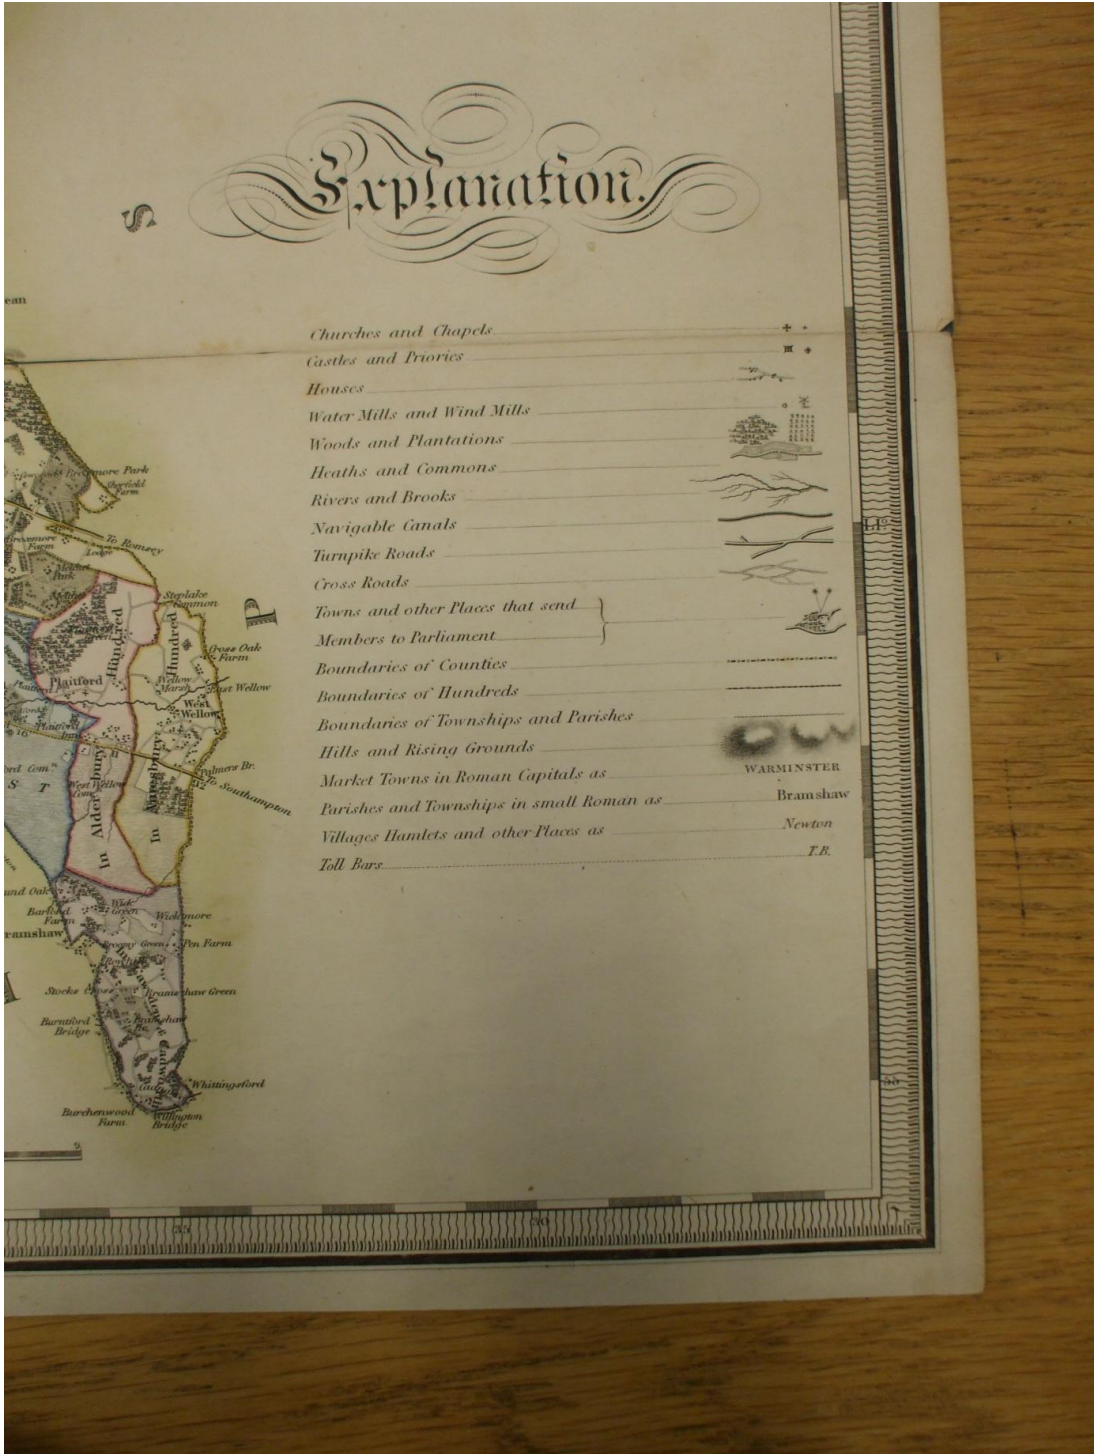 Explanation.
S
ean
Churches and Chapels
Castles and Priories
Houses
Water Mills and Wind Mills
Woods and Plantations
Heaths and Commons
Rivers and Brooks
Navigable Canals
Turnpike Roads
Cross Roads
Towns and other Places that send
Members to Parliament
Boundaries of Counties
Boundaries of Hundreds
Boundaries of Townships and Parishes
Hills and Rising Grounds
Market Towns in Roman Capitals as WARMINSTER
Parishes and Townships in small Roman as Bramshaw
Villages Hamlets and other Places as Newton
Toll Bars T.B.
Park
Sherfield
Farm
To Romsey
Farm
Lodge
Park
Steplake
Common
P
Hundred
Hundred
Cross Oak
Farm
Plaitford
Wellow
Marsh
East Wellow
West
Wellow
Plaitford
Inn
16
ford Com.n
S T
Palmers Br.
12
To Southampton
West Wellow
Com.
In Alderbury
In Amesbury
und Oak
Wick
Green
Barford
Farm
Wickmore
ramshaw
Pen Farm
Stocks Cross
Bramshaw Green
Burntford
Bridge
Bramshaw
Whittingsford
Burchenwood
Farm
Bridge
H
35
30
55